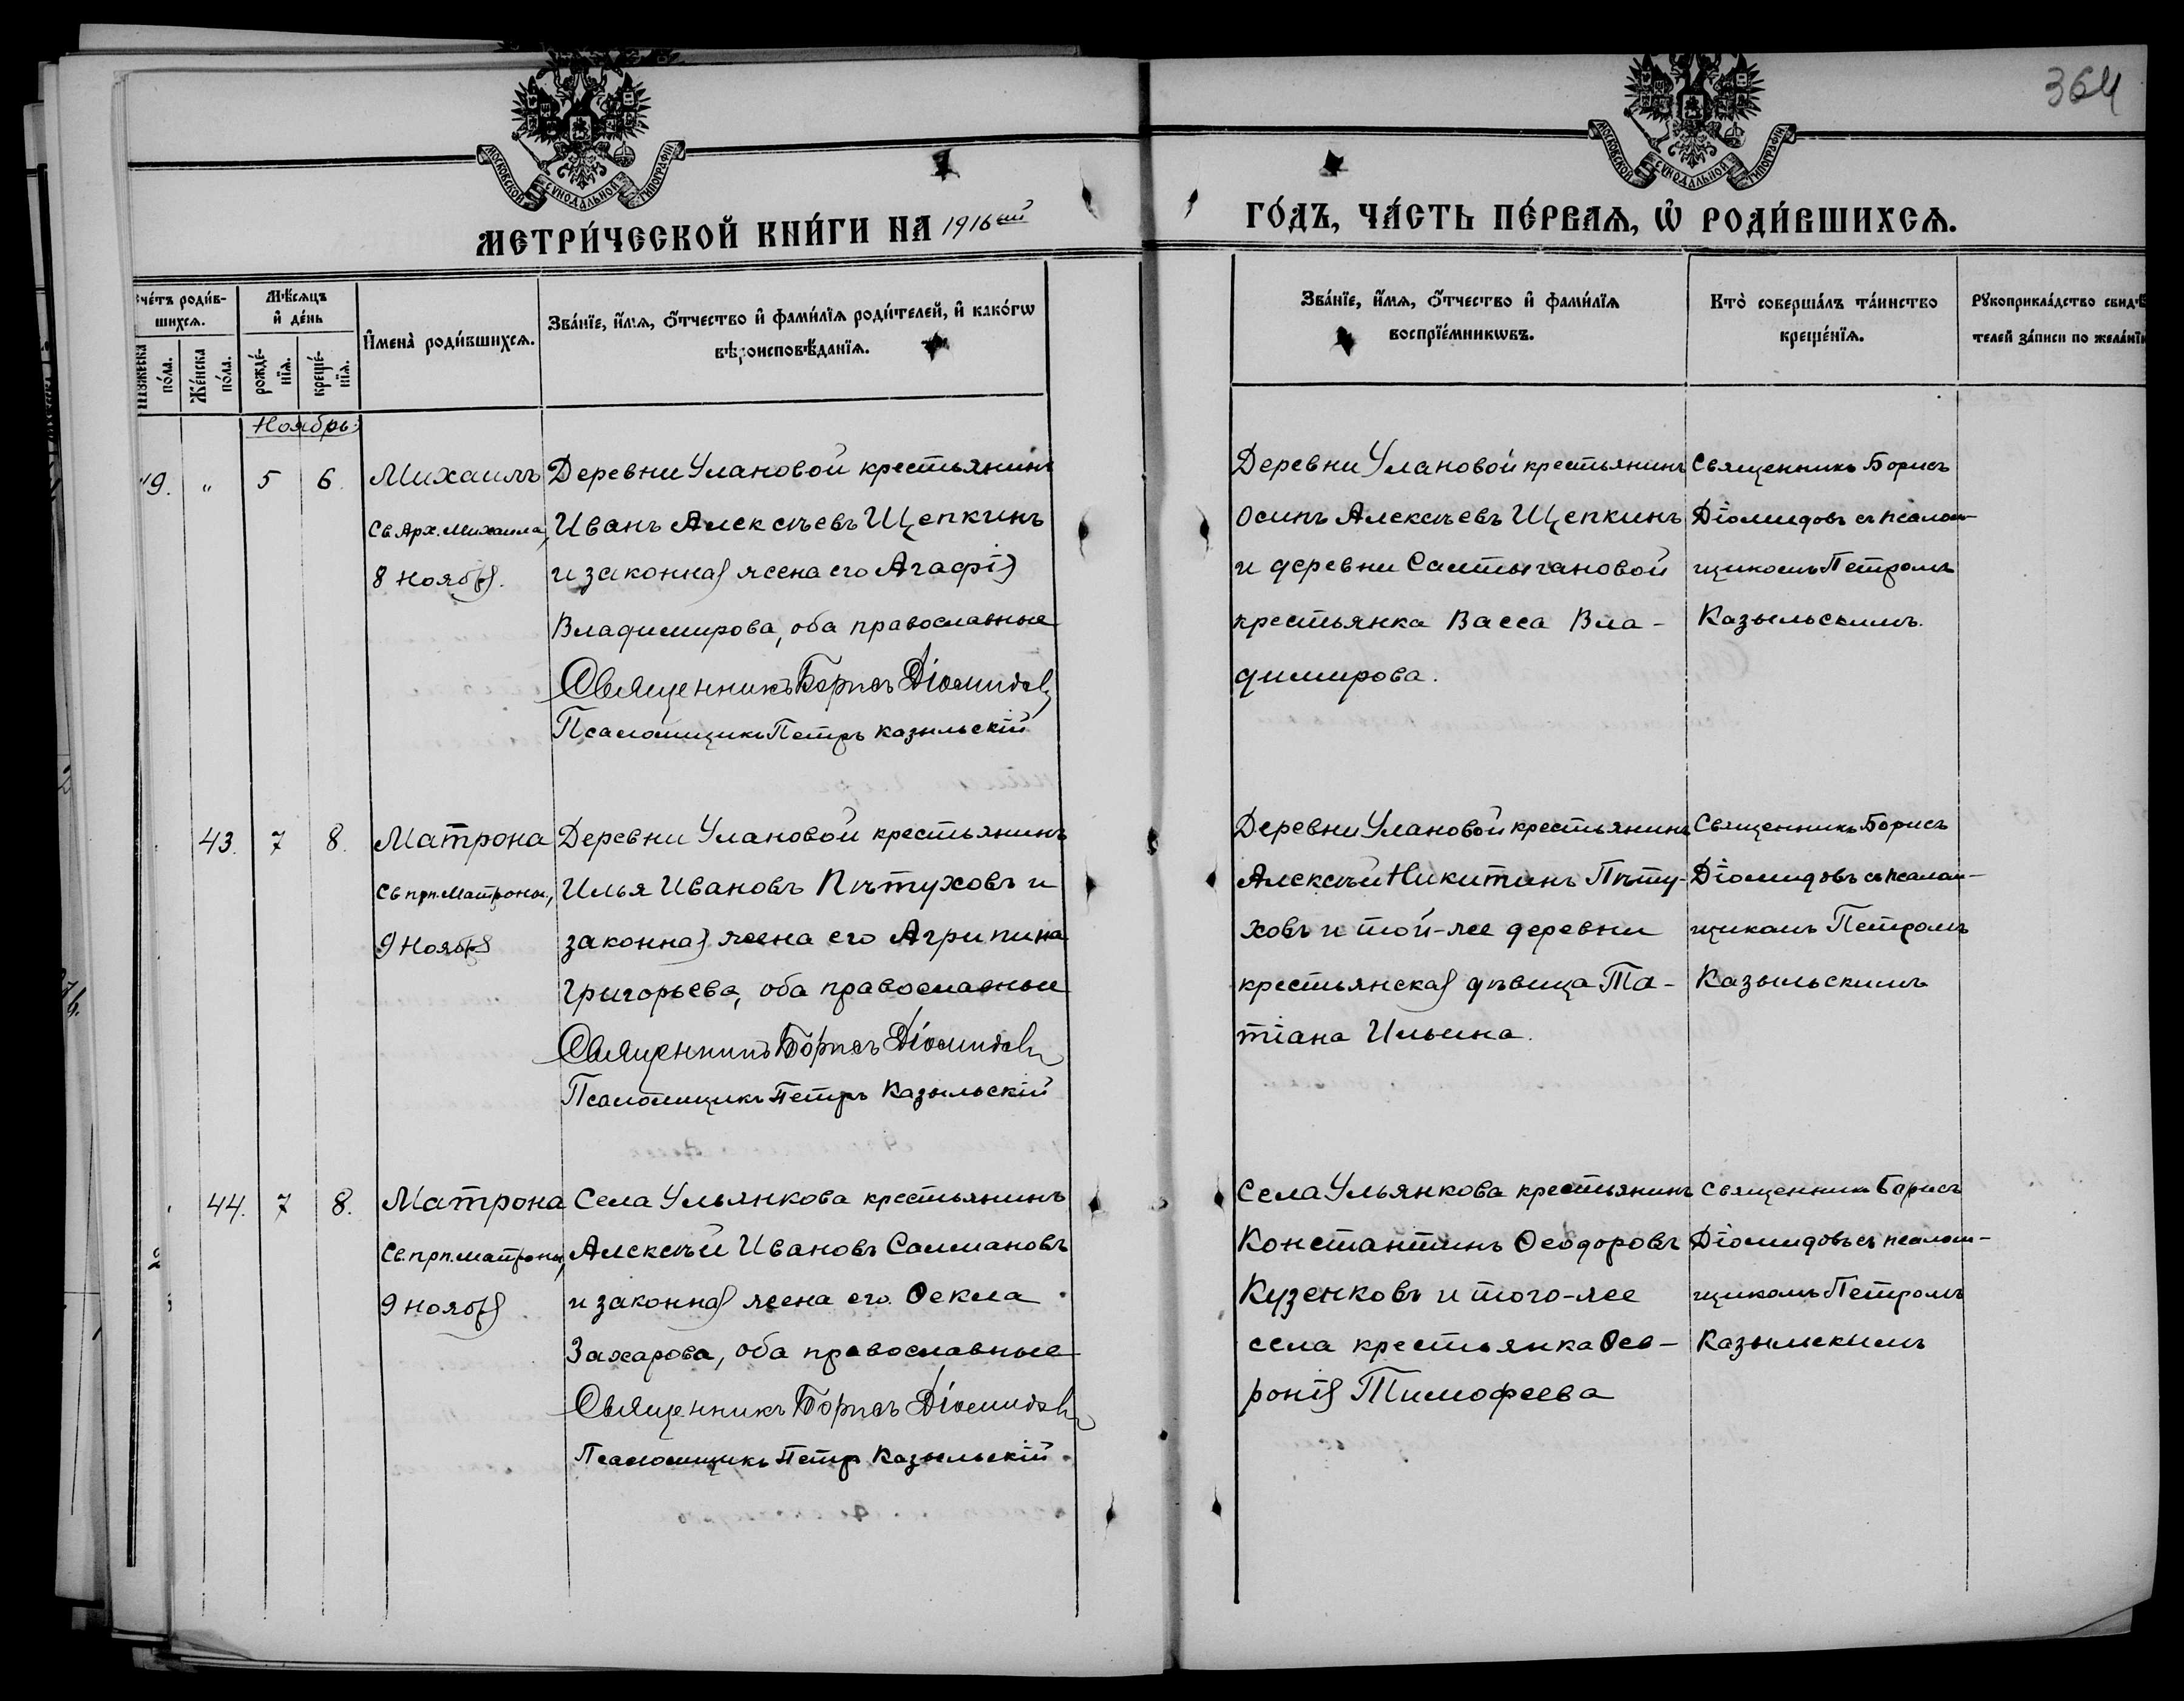 364
МОСКОВСКОЙ СѴНОДАЛЬНОЙ ТИПОГРАФІИ
МОСКОВСКОЙ СѴНОДАЛЬНОЙ ТИПОГРАФІИ
МЕТРИ́ЧЕСКОЙ КНИ́ГИ НА 1916ый
ГО́ДЪ, ЧА́СТЬ ПЕ́РВАѦ, Ѿ РОДИ́ВШИХСѦ.
Сче́тъ роди́в-
шихсѧ.
Мѣ́сѧцъ
и҆ де́нь
Мужеска
по́ла.
Же́нска
по́ла.
рожде́-
нїѧ.
креще́-
нїѧ.
И҆мена̀ роди́вшихсѧ.
Зва́нїе, и҆́мѧ, ѻ҆́тчество и҆ фами́лїѧ роди́телей, и҆ како́гѡ
вѣроисповѣ́данїѧ.
Зва́нїе, и҆́мѧ, ѻ҆́тчество и҆ фами́лїѧ
воспрїе́мникѡвъ.
Кто̀ соверша́лъ та́инство
креще́нїѧ.
Рꙋкоприкла́дство свидѣ
телей за́писи по жела́нїю
Ноябрь:
19. " 5 6.
Михаилъ
Св. Арх. Михаила,
8 Ноября.
Деревни Улановой крестьянинъ
Иванъ Алексѣевъ Щепкинъ
и законная жена его Агафія
Владимирова, оба православные
Священникъ Борисъ Діомидовъ
Псаломщикъ Петръ Казыльскій
Деревни Улановой крестьянинъ
Осипъ Алексѣевъ Щепкинъ
и деревни Салтыгановой
крестьянка Васса Вла-
димирова.
Священникъ Борисъ
Діомидовъ съ псалом-
щикомъ Петромъ
Казыльскимъ.
43. 7 8.
Матрона
Св. прп. Матроны,
9 Ноября
Деревни Улановой крестьянинъ
Илья Ивановъ Пѣтуховъ и
законная жена его Агрипина
Григорьева, оба православные
Священникъ Борисъ Діомидовъ
Псаломщикъ Петръ Казыльскій
Деревни Улановой крестьянинъ
Алексѣй Никитинъ Пѣту-
ховъ и той-же деревни
крестьянская дѣвица Та-
тіана Ильина.
Священникъ Борисъ
Діомидовъ съ псалом-
щикомъ Петромъ
Казыльскимъ
44. 7 8.
Матрона
Св. прп. Матроны,
9 Ноября
Села Ульянкова крестьянинъ
Алексѣй Ивановъ Салмановъ
и законная жена его Ѳекла
Захарова, оба православные
Священникъ Борисъ Діомидовъ
Псаломщикъ Петръ Казыльскій.
Села Ульянкова крестьянинъ
Константинъ Ѳеодоровъ
Кузенковъ и того-же
села крестьянка Ѳев-
ронія Тимофеева
Священникъ Борисъ
Діомидовъ съ псалом-
щикомъ Петромъ
Казыльскимъ